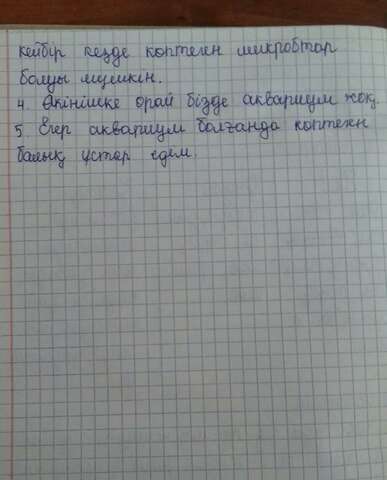 кейбір кезде көптеген микробтар
болуы мүмкін.
4. Өкінішке орай бізде аквариум жоқ.
5. Егер аквариум болғанда көптеген
балық ұстар едем.